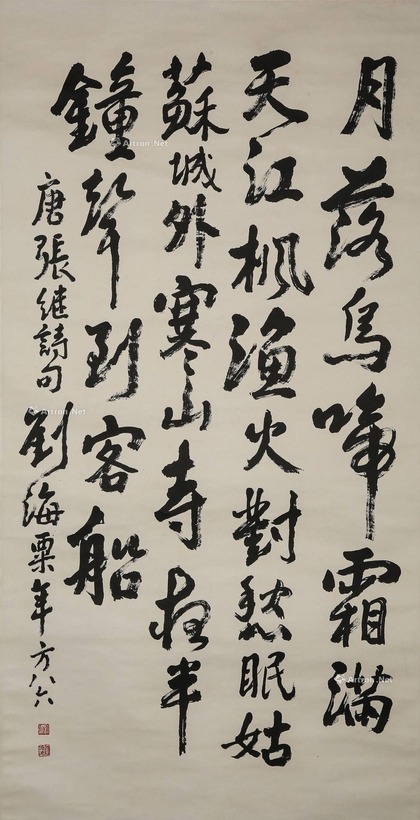 月落烏啼霜滿
天江枫渔火對愁眠姑
蘇城外寒山寺夜半
鐘聲到客船
唐張继詩句
劉海粟年方八六
Artron.Net
Artron.Net
Artron.Net
Artron.Net